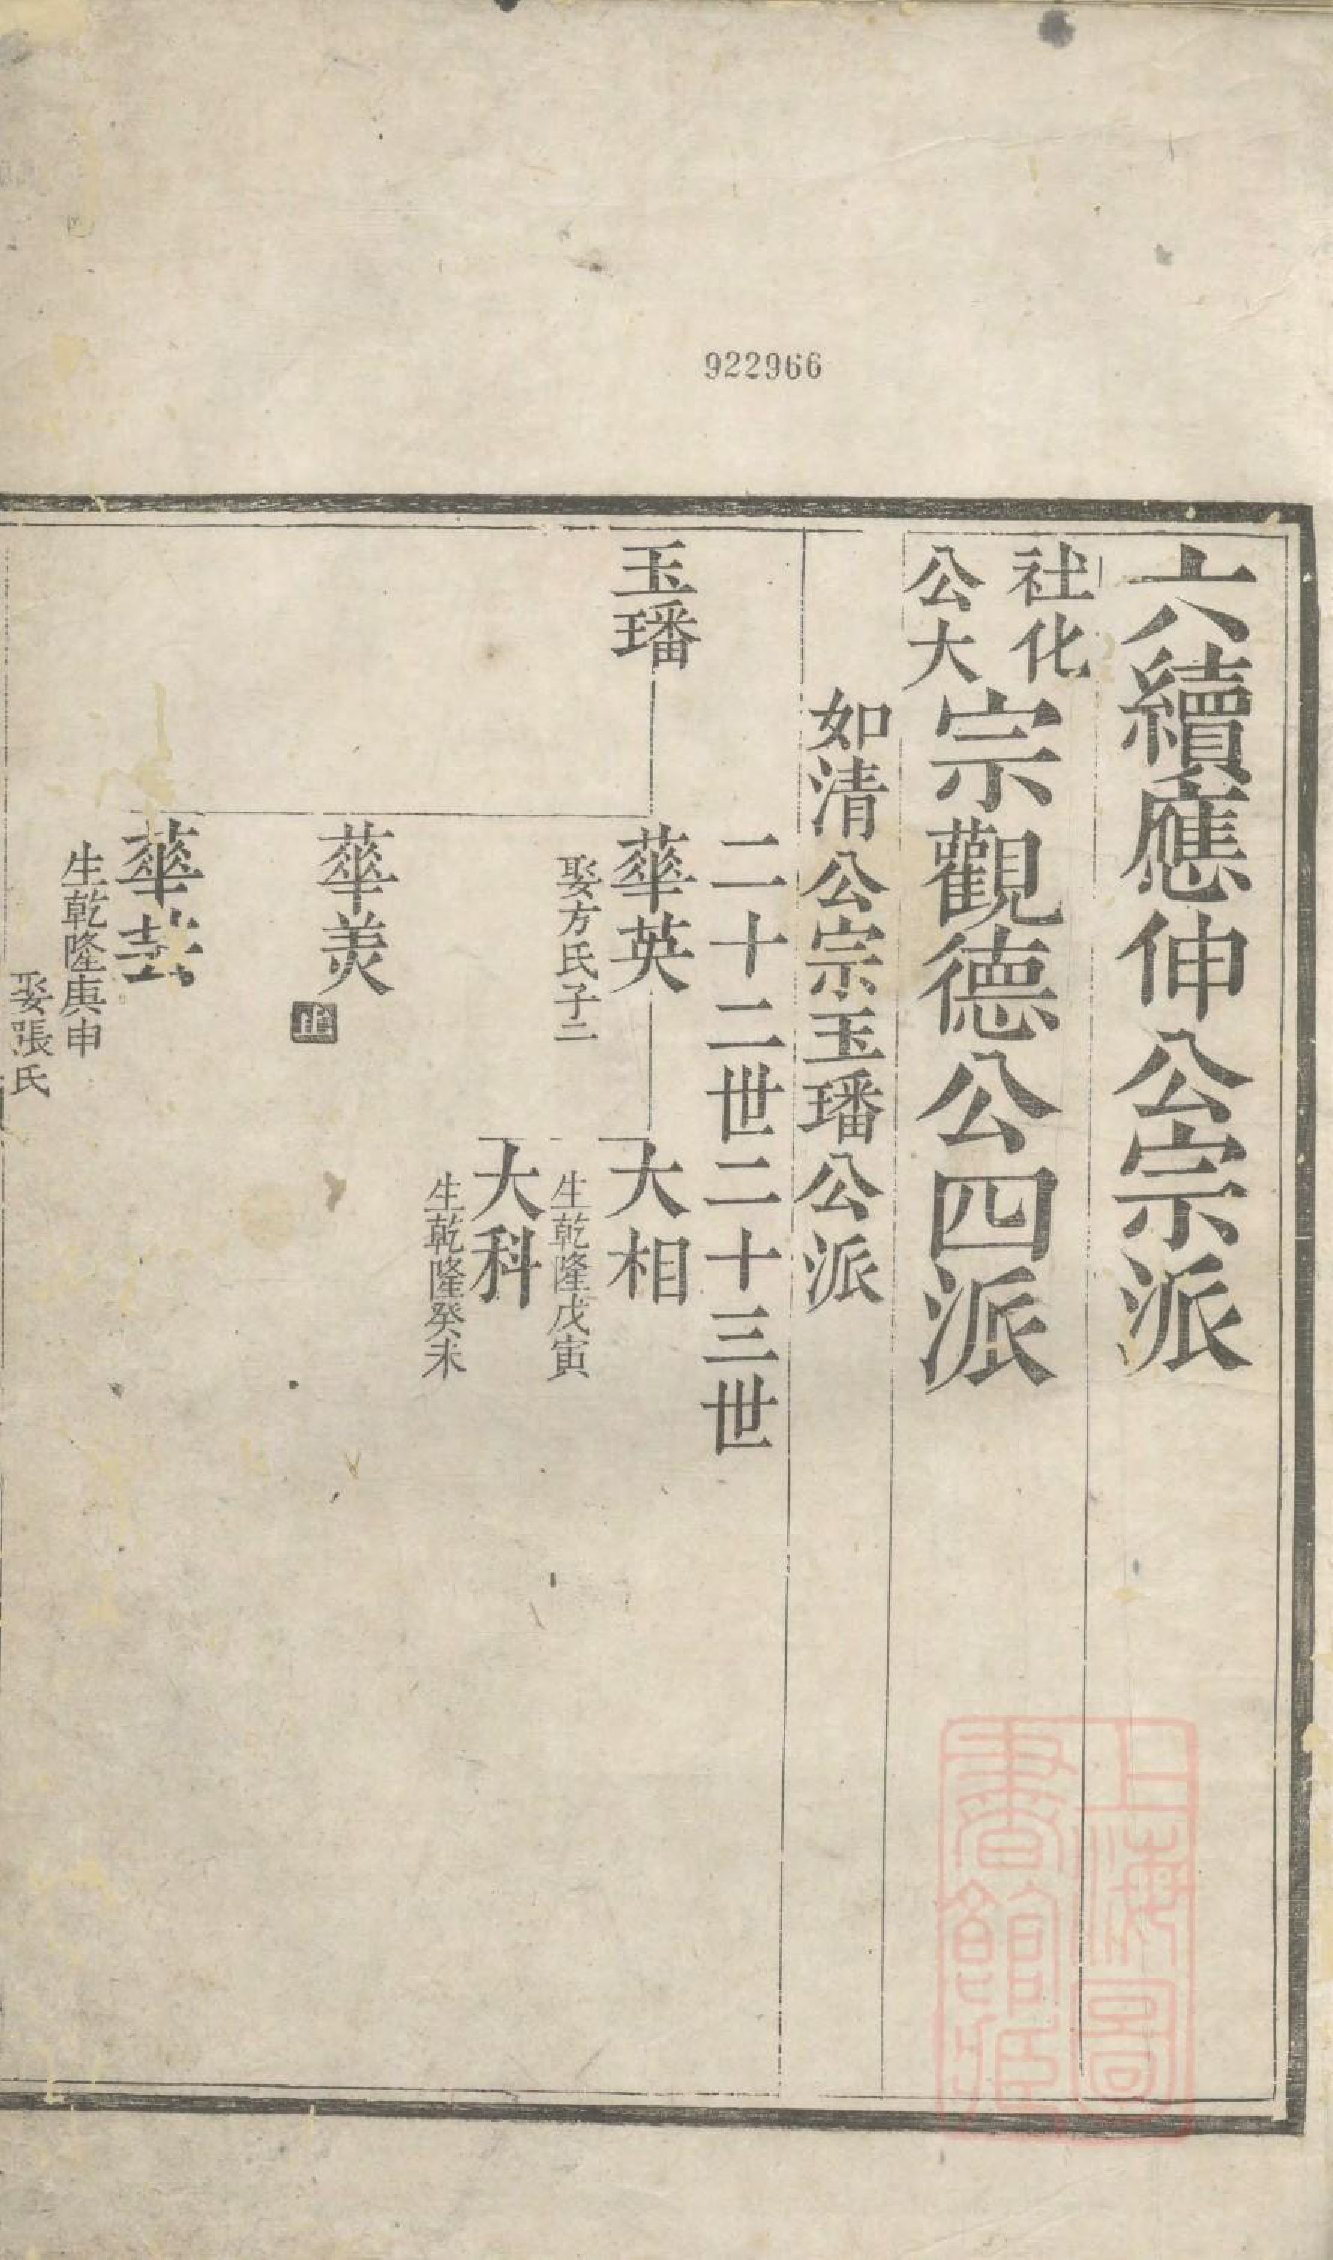 922966
六續應伸公宗派
社化
公大
宗觀德公四派
如清公宗玉璠公派
二十二世二十三世
玉璠
華英
大相
娶方氏子二
生乾隆戊寅
大科
生乾隆癸未
華羙
止
華
生乾隆庚申
娶張氏
上海圖
書館藏